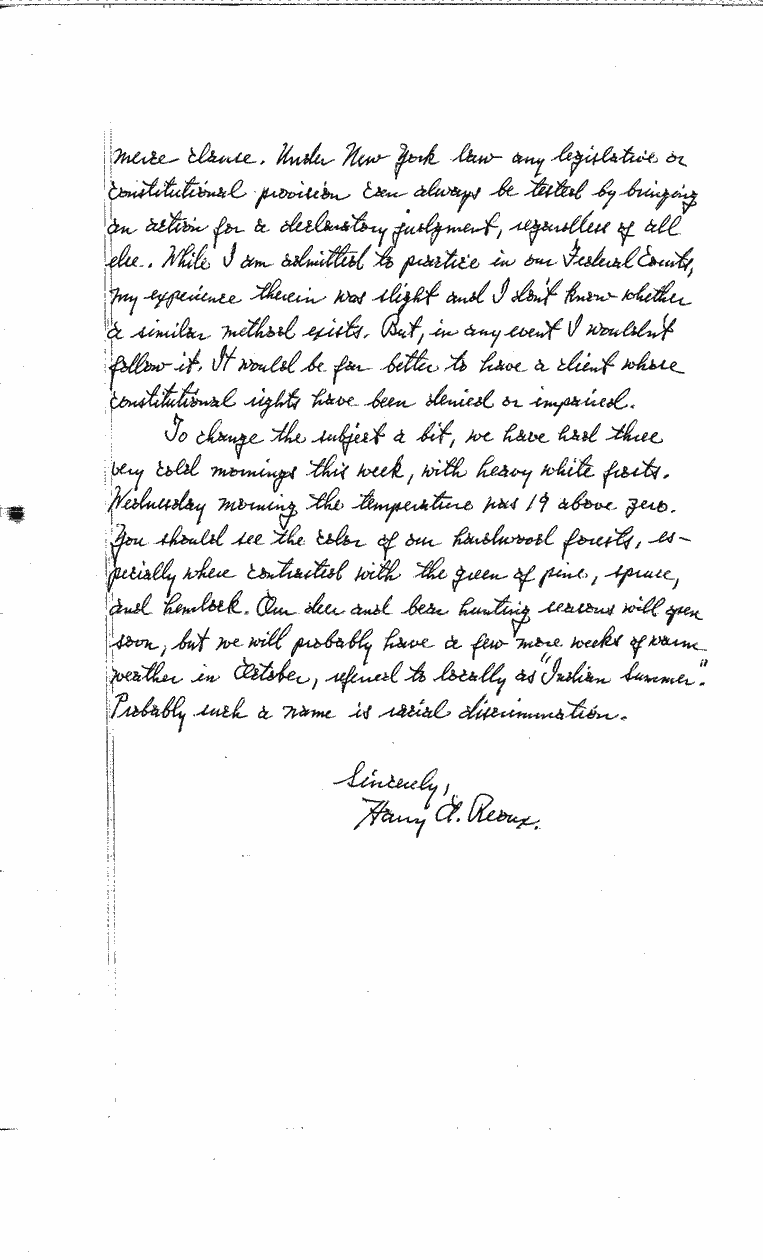 merce clause. Under New York law any legislative or
constitutional provision can always be tested by bringing
an action for a declaratory judgment, regardless of all
else. While I am admitted to practice in our Federal Courts,
my experience therein was slight and I don't know whether
a similar method exists. But, in any event I wouldn't
follow it. It would be far better to have a client whose
constitutional rights have been denied or impaired.
To change the subject a bit, we have had three
very cold mornings this week, with heavy white frosts.
Wednesday morning the temperature was 19 above zero.
You should see the color of our hardwood forests, es-
pecially where contrasted with the green of pine, spruce,
and hemlock. Our deer and bear hunting seasons will open
soon, but we will probably have a few more weeks of warm
weather in October, referred to locally as "Indian Summer".
Probably such a name is racial discrimination.
Sincerely,
Harry A. Reoux.